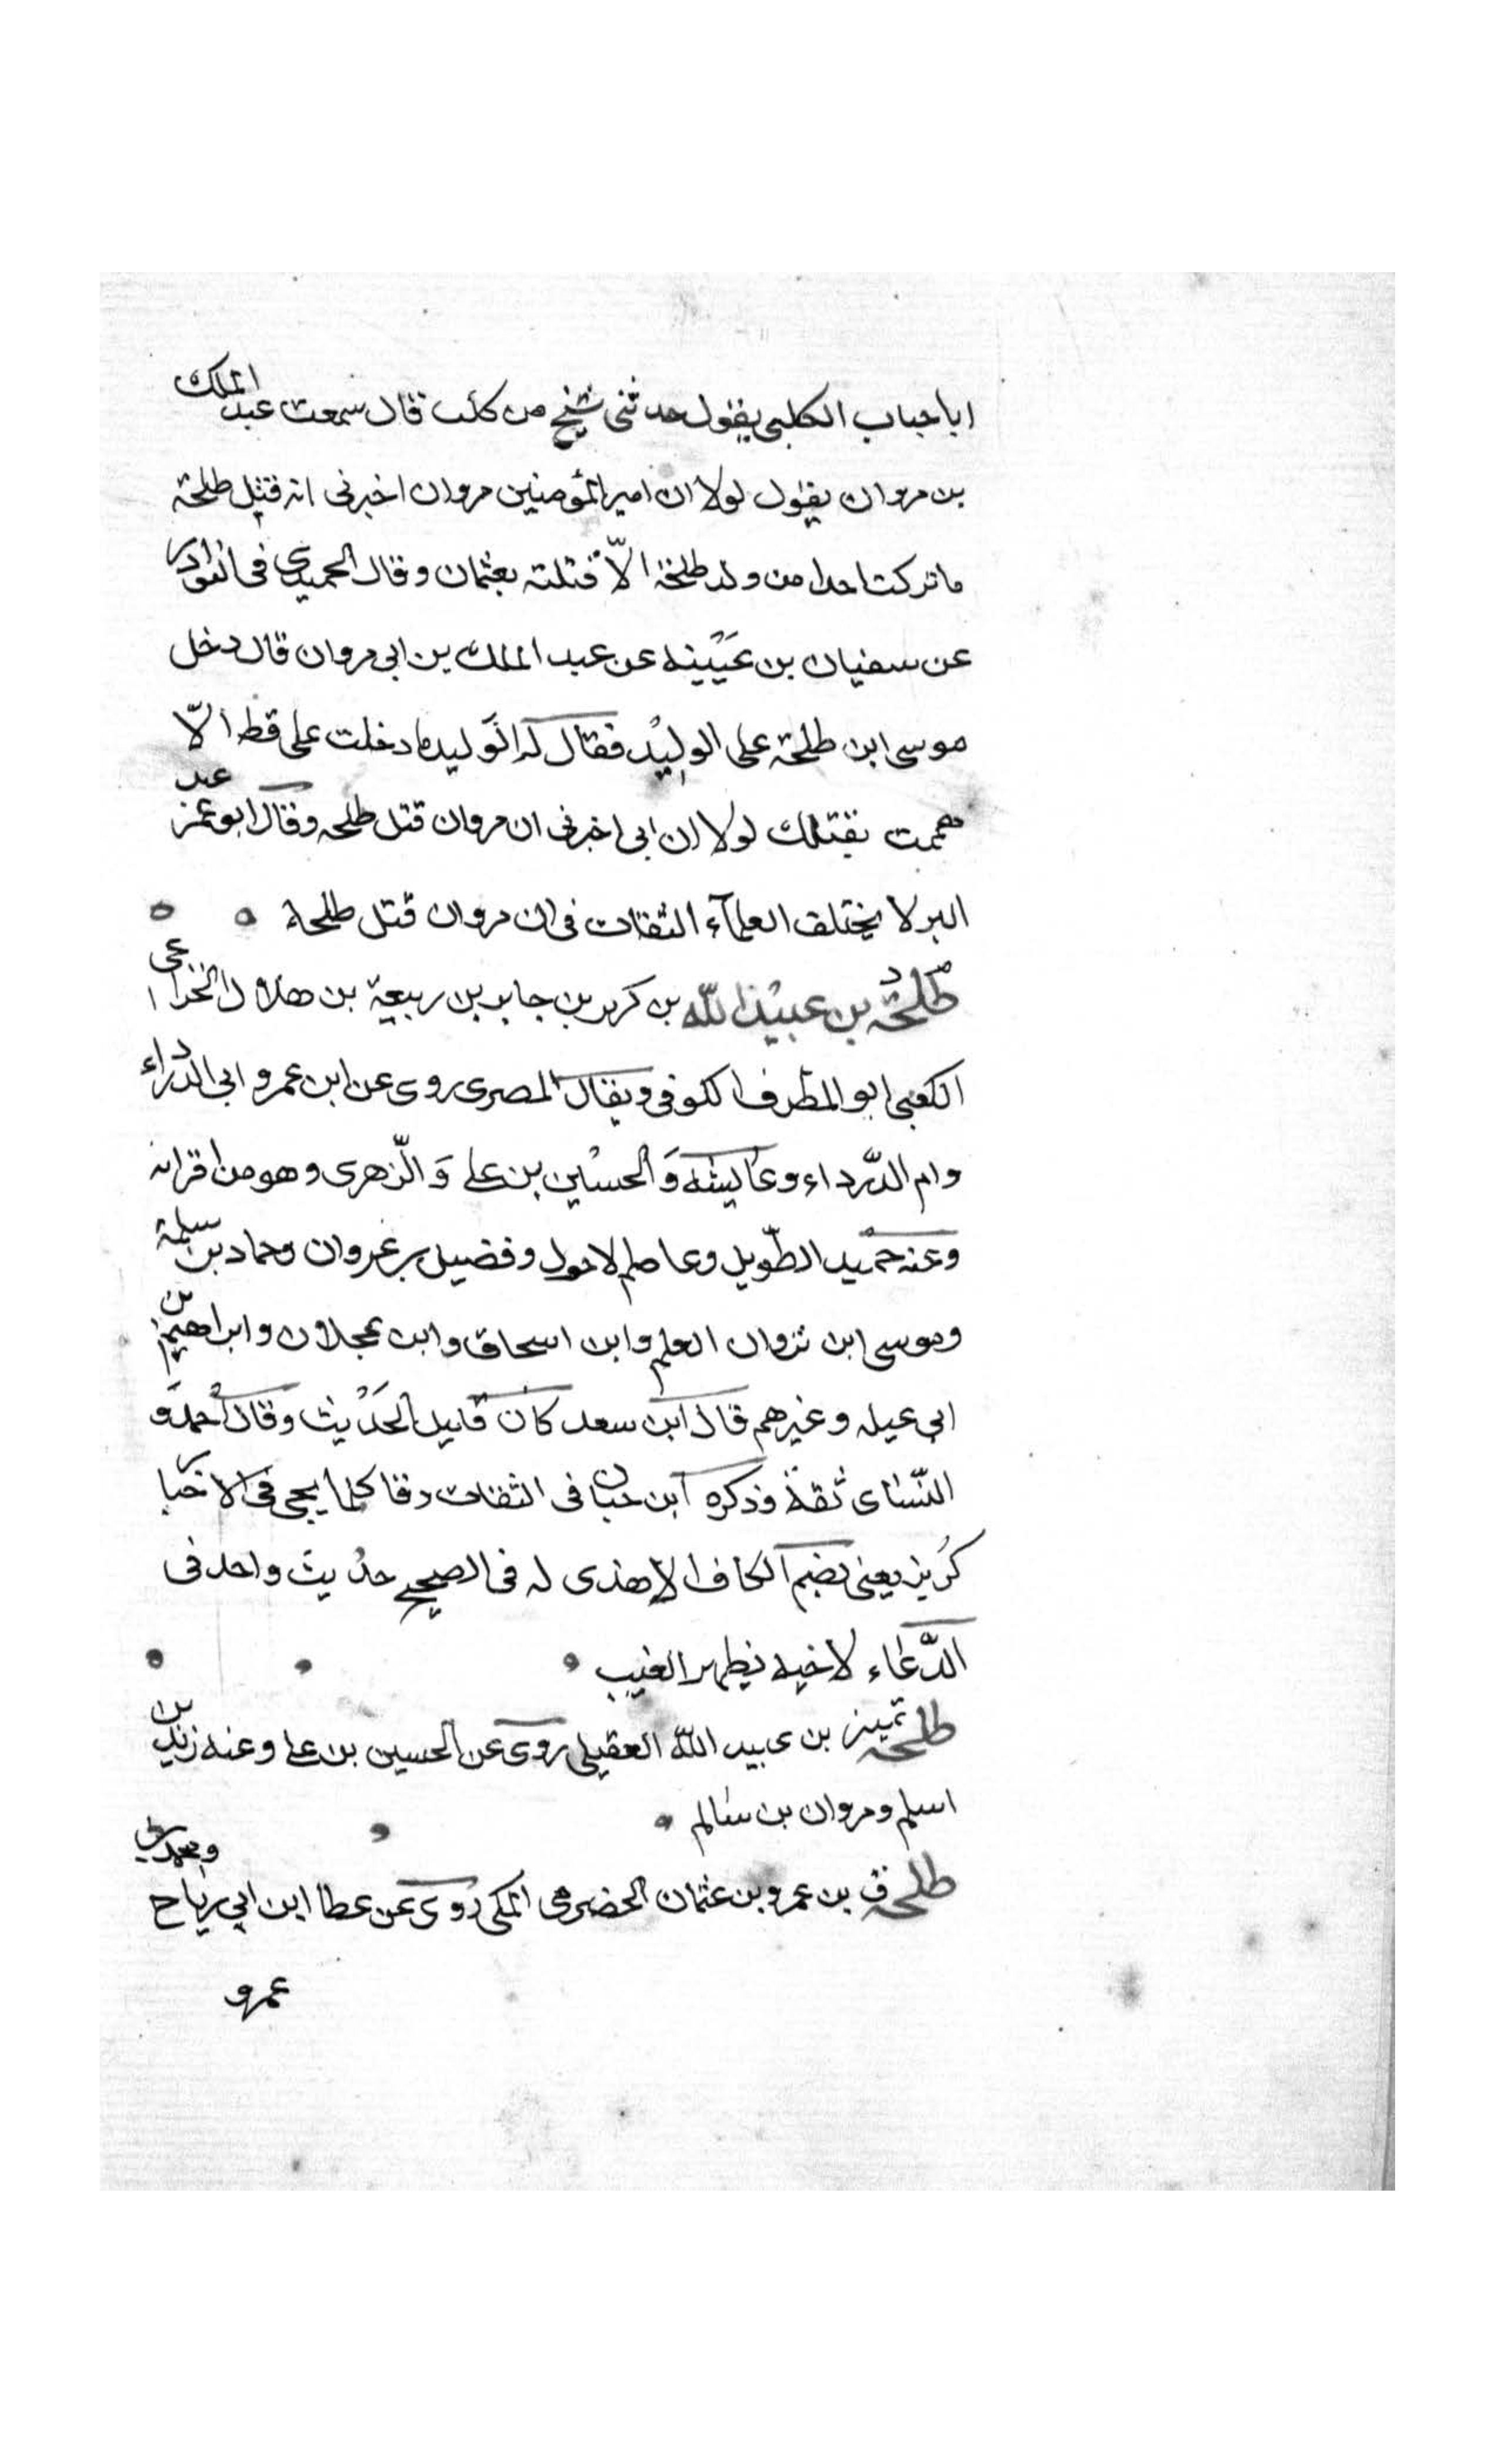 ابا حباب الكلبي يقول حدثني شيخ من كلب قال سمعت عبد الملك
بن مروان يقول لولا ان امير المؤمنين مروان اخبرني انه قتل طلحة
ما تركت احدا من ولد طلحة الّا قتلته بعثمان وقال الحميدي في النوادر
عن سفيان بن عيينه عن عبد الملك بن ابي مروان قال دخل
موسى ابن طلحة على الوليد فقال له الوليد ما دخلت على قط الّا
هممت بقتلك لولا ان ابي اخبرني ان مروان قتل طلحه وقال ابو عمر عبد
البر لا يختلف العلمآء الثقات في ان مروان قتل طلحة
طلحة بن عبيد الله بن كريز بن جابر بن ربيعة بن هلال الخزاعى
الكعبي ابو المطرف الكوفي ويقال المصرى روى عن ابن عمر وابي الدرداء
وام الدّرداء وعايشه والحسين بن على وَالّزهرى وهو من اقرانه
وعنه حميد الطّويل وعاصم الاحول وفضيل بن غزوان وحماد بن سلمة
وموسى ابن ثروان العلم وابن اسحاق وابن عجلان وابراهيم بن
ابي عيله وغيرهم قال ابن سعد كان قليل الحديث وقال احمد و
النّسائ ثقة وذكره ابن حبان في الثقات وقا كلما يجى في الاخبار
كريز يعني بضم الكاف الا هذى له في الصحيح حديث واحد في
الدّعاء لاخيه بظهر الغيب
طلحه تمييز بن عبيد اللّه العقيلى روى عن الحسين بن على وعنه زيد بن
اسلم ومروان بن سالم
طلحه ق بن عمرو بن عثمان الحضرمى المكى روى عن عطا ابن ابي رباح ومحمد بن
عمرو